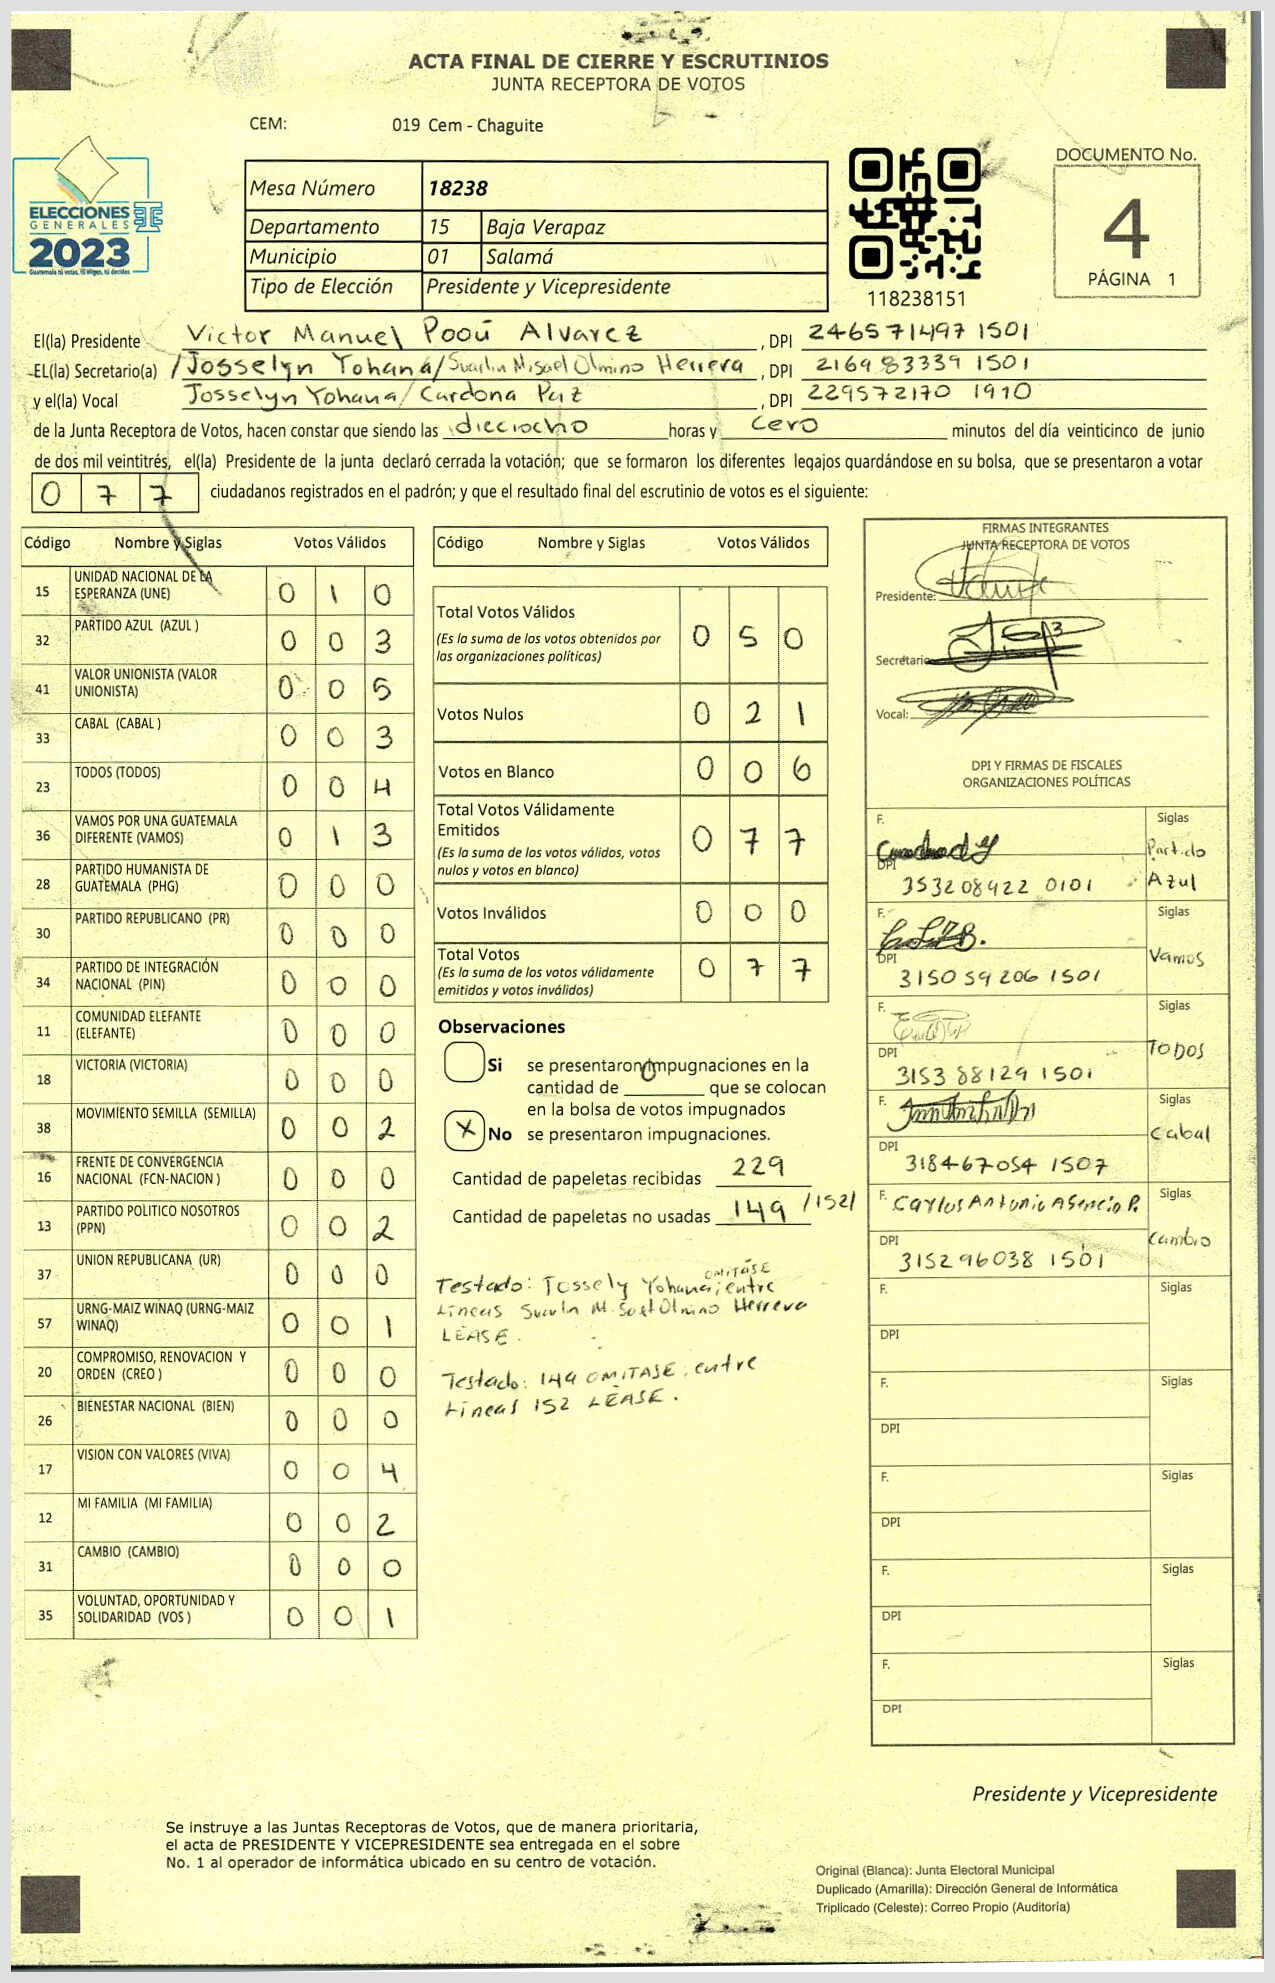 ACTA FINAL DE CIERRE Y ESCRUTINIOS
JUNTA RECEPTORA DE VOTOS
CEM: 019 Cem - Chaguite
ELECCIONES
GENERALES
2023
Mesa Número 18238
Departamento 15 Baja Verapaz
Municipio 01 Salamá
Tipo de Elección Presidente y Vicepresidente
118238151
DOCUMENTO No.
4
PÁGINA 1
El(la) Presidente Victor Manuel Pooú Alvarez, DPI 246571497 1501
EL(la) Secretario(a) /Josselyn Yohana/ Olmino Herrera, DPI 216983339 1501
y el(la) Vocal Josselyn Yohana/ Cardona Paz, DPI 229572170 1910
de la Junta Receptora de Votos, hacen constar que siendo las dieciocho horas y cero minutos del día veinticinco de junio
de dos mil veintitrés, el(la) Presidente de la junta declaró cerrada la votación; que se formaron los diferentes legajos guardándose en su bolsa, que se presentaron a votar
0 7 7 ciudadanos registrados en el padrón; y que el resultado final del escrutinio de votos es el siguiente:
Código Nombre y Siglas Votos Válidos
15 UNIDAD NACIONAL DE LA ESPERANZA (UNE) 0 1 0
32 PARTIDO AZUL (AZUL ) 0 0 3
41 VALOR UNIONISTA (VALOR UNIONISTA) 0 0 5
33 CABAL (CABAL ) 0 0 3
23 TODOS (TODOS) 0 0 4
36 VAMOS POR UNA GUATEMALA DIFERENTE (VAMOS) 0 1 3
28 PARTIDO HUMANISTA DE GUATEMALA (PHG) 0 0 0
30 PARTIDO REPUBLICANO (PR) 0 0 0
34 PARTIDO DE INTEGRACIÓN NACIONAL (PIN) 0 0 0
11 COMUNIDAD ELEFANTE (ELEFANTE) 0 0 0
18 VICTORIA (VICTORIA) 0 0 0
38 MOVIMIENTO SEMILLA (SEMILLA) 0 0 2
16 FRENTE DE CONVERGENCIA NACIONAL (FCN-NACION ) 0 0 0
13 PARTIDO POLITICO NOSOTROS (PPN) 0 0 2
37 UNION REPUBLICANA (UR) 0 0 0
57 URNG-MAIZ WINAQ (URNG-MAIZ WINAQ) 0 0 1
20 COMPROMISO, RENOVACION Y ORDEN (CREO ) 0 0 0
26 BIENESTAR NACIONAL (BIEN) 0 0 0
17 VISION CON VALORES (VIVA) 0 0 4
12 MI FAMILIA (MI FAMILIA) 0 0 2
31 CAMBIO (CAMBIO) 0 0 0
35 VOLUNTAD, OPORTUNIDAD Y SOLIDARIDAD (VOS ) 0 0 1
Código Nombre y Siglas Votos Válidos
Total Votos Válidos 0 5 0
(Es la suma de los votos obtenidos por
las organizaciones políticas)
Votos Nulos 0 2 1
Votos en Blanco 0 0 6
Total Votos Válidamente
Emitidos 0 7 7
(Es la suma de los votos válidos, votos
nulos y votos en blanco)
Votos Inválidos 0 0 0
Total Votos 0 7 7
(Es la suma de los votos válidamente
emitidos y votos inválidos)
Observaciones
Si se presentaron impugnaciones en la
cantidad de 0 que se colocan
en la bolsa de votos impugnados
X No se presentaron impugnaciones.
Cantidad de papeletas recibidas 229
Cantidad de papeletas no usadas 149 /152/
Testado: Jossely Yohana; OMITÁSE entre
Lineas Olmino Herrera
LÉASE.
Testado: 149 OMITASE, entre
Lineas 152 LÉASE.
FIRMAS INTEGRANTES
JUNTA RECEPTORA DE VOTOS
Presidente:
Secretario
Vocal:
DPI Y FIRMAS DE FISCALES
ORGANIZACIONES POLÍTICAS
F. Siglas
Partido Azul
DPI 353208422 0101
F. Siglas
Vamos
DPI 315059206 1501
F. Siglas
TODOS
DPI 315388129 1501
F. Siglas
Cabal
DPI 318467054 1507
F. Carlos Antonio Asencio P. Siglas
Cambio
DPI 315296038 1501
F. Siglas
DPI
F. Siglas
DPI
F. Siglas
DPI
F. Siglas
DPI
F. Siglas
DPI
Presidente y Vicepresidente
Se instruye a las Juntas Receptoras de Votos, que de manera prioritaria,
el acta de PRESIDENTE Y VICEPRESIDENTE sea entregada en el sobre
No. 1 al operador de informática ubicado en su centro de votación.
Original (Blanca): Junta Electoral Municipal
Duplicado (Amarilla): Dirección General de Informática
Triplicado (Celeste): Correo Propio (Auditoría)